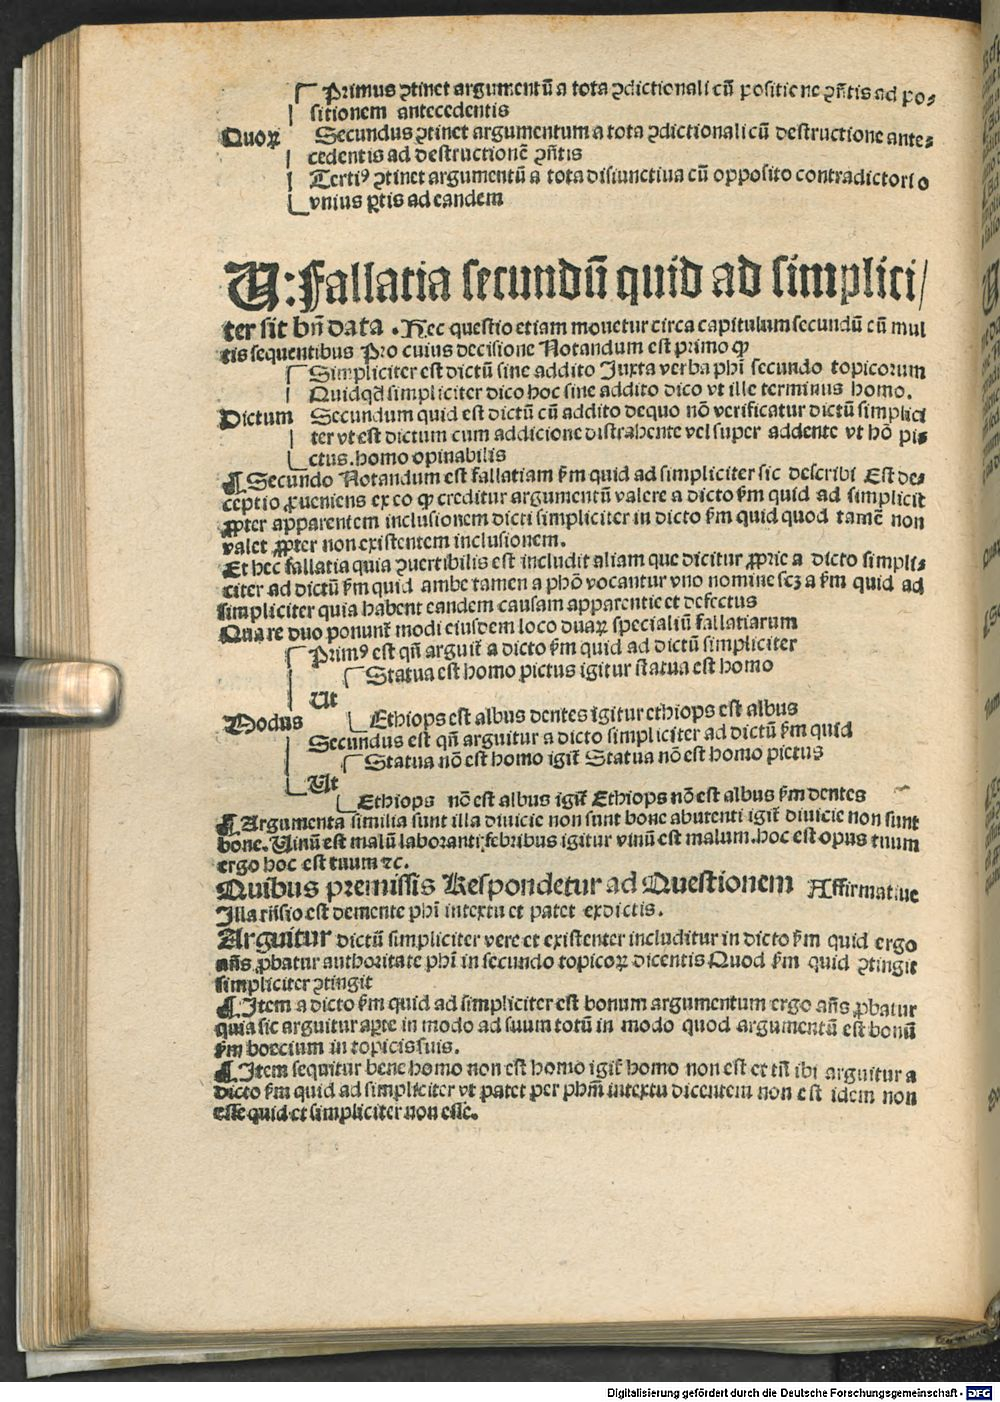 Primus ꝯtinet argumentū a tota ꝯdictionali cū positione ꝯñtis ad po⸗
sitionem antecedentis
Quoꝝ Secundus ꝯtinet argumentum a tota ꝯdictionali cū destructione ante⸗
cedentis ad destructionē ꝯñtis
Tertiꝰ ꝯtinet argumentū a tota disiunctiua cū opposito contradictorio
vnius ꝑtis ad eandem
U:fallatia secundū quid ad simplici/
ter sit bñ data . Hec questio etiam mouetur circa capitulum secundū cū mul
tis sequentibus Pro cuius decisione Notandum est primo ꝙ
Simpliciter est dictū sine addito Juxta verba phi̅ secundo topicorum
Quidqd̅ simpliciter dico hoc sine addito dico vt ille terminus homo.
Dictum Secundum quid est dictū cū addito dequo nō verificatur dictū simplici
ter vt est dictum cum addicione distrahente vel super addente vt hō pi⸗
ctus.homo opinabilis
¶ Secundo Notandum est fallatiam ẜm quid ad simpliciter sic describi Est de⸗
ceptio ꝓueniens ex eo ꝙ creditur argumentū valere a dicto ẜm quid ad simplicit̅
ꝓpter apparentem inclusionem dicti simpliciter in dicto ẜm quid quod tamē non
valet ꝓpter non existentem inclusionem.
Et hec fallatia quia ꝯuertibilis est includit aliam que dicitur ꝓprie a dicto simpli⸗
citer ad dictū ẜm quid ambe tamen a phō vocantur vno nomine scꝫ a ẜm quid ad
simpliciter quia habent eandem causam apparentie et defectus
Quare duo ponunt̅ modi eiusdem loco duaꝝ specialiū fallatiarum
Primꝰ est qn̅ arguit̅ a dicto ẜm quid ad dictū simpliciter
Statua est homo pictus igitur statua est homo
Ut
Modus Ethiops est albus dentes igitur ethiops est albus
Secundus est qn̅ arguitur a dicto simpliciter ad dictū ẜm quid
Statua nō est homo igit̅ Statua nō est homo pictus
Ut
Ethiops nō est albus igit̅ Ethiops nō est albus ẜm dentes
¶ Argumenta similia sunt illa diuicie non sunt bone abutenti igit̅ diuicie non sunt
bone. Uinū est malū laboranti febribus igitur vinū est malum.hoc est opus tuum
ergo hoc est tuum ⁊c.
Quibus premissis Respondetur ad Questionem Affirmatiue
Illa rn̅sio est demente phi̅ intextu et patet exdictis.
Arguitur dictū simpliciter vere et existenter includitur in dicto ẜm quid ergo
an̅s ꝓbatur authoritate phi̅ in secundo topicoꝝ dicentis Quod ẜm quid ꝯtingit
simpliciter ꝯtingit
¶ Item a dicto ẜm quid ad simpliciter est bonum argumentum ergo an̅s ꝓbatur
quia sic arguitur aꝑte in modo ad suum totū in modo quod argumentū est bonū
ẜm boecium in topicis suis.
¶ Item sequitur bene homo non est homo igit̅ homo non est et tn̅ ibi arguitur a
dicto ẜm quid ad simpliciter vt patet per phm̅ intextu dicentem non est idem non
esse quid et simpliciter non esse.
Digitalisierung gefördert durch die Deutsche Forschungsgemeinschaft - DFG